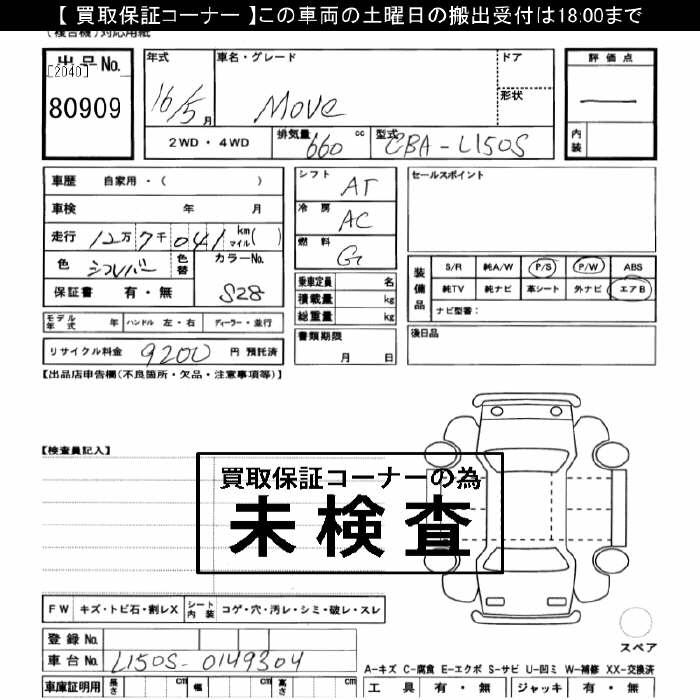 【 買取保証コーナー 】この車両の土曜日の搬出受付は18:00まで
(複合機)対応用紙
出品No.
[2040]
80909
年式
16/5月
車名・グレード
Move
ドア
形状
評価点
内装
2WD・4WD
排気量 660 cc
型式 CBA-L150S
車歴 自家用・( )
車検 年 月
走行 12万7千041 km マイル( )
色 シルバー 色替
カラーNo. S28
保証書 有・無
シフト AT
冷房 AC
燃料 G
乗車定員 名
積載量 kg
総重量 kg
セールスポイント
装備品
S/R 純A/W P/S P/W ABS
純TV 純ナビ 革シート 外ナビ エアB
ナビ型番:
モデル年式 年 ハンドル 左・右 ディーラー・並行
リサイクル料金 9200 円 預託済
書類期限
月 日
後日品
【出品店申告欄(不良箇所・欠品・注意事項等)】
【検査員記入】
買取保証コーナーの為
未検査
FW キズ・トビ石・割レX シート内装 コゲ・穴・汚レ・シミ・破レ・スレ
スペア
登録No.
車台No. L150S-0149304
A-キズ C-腐食 E-エクボ S-サビ U-凹ミ W-補修 XX-交換済
車庫証明用 長さ cm 幅 cm 高さ cm
工具 有・無 ジャッキ 有・無